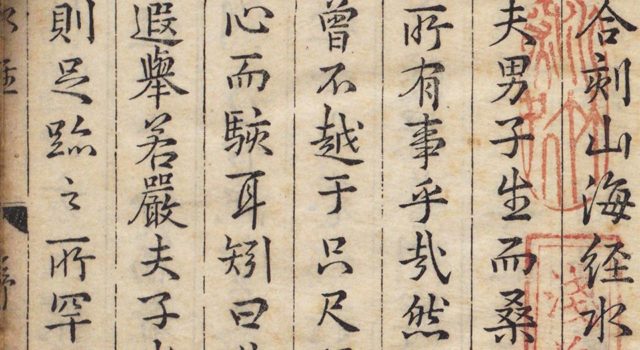 合刻山海经水
夫男子生而桑
所有事乎哉然
曾不越于只尺
心而駭耳矧曰
遐舉若嚴夫子
則足跡之所罕